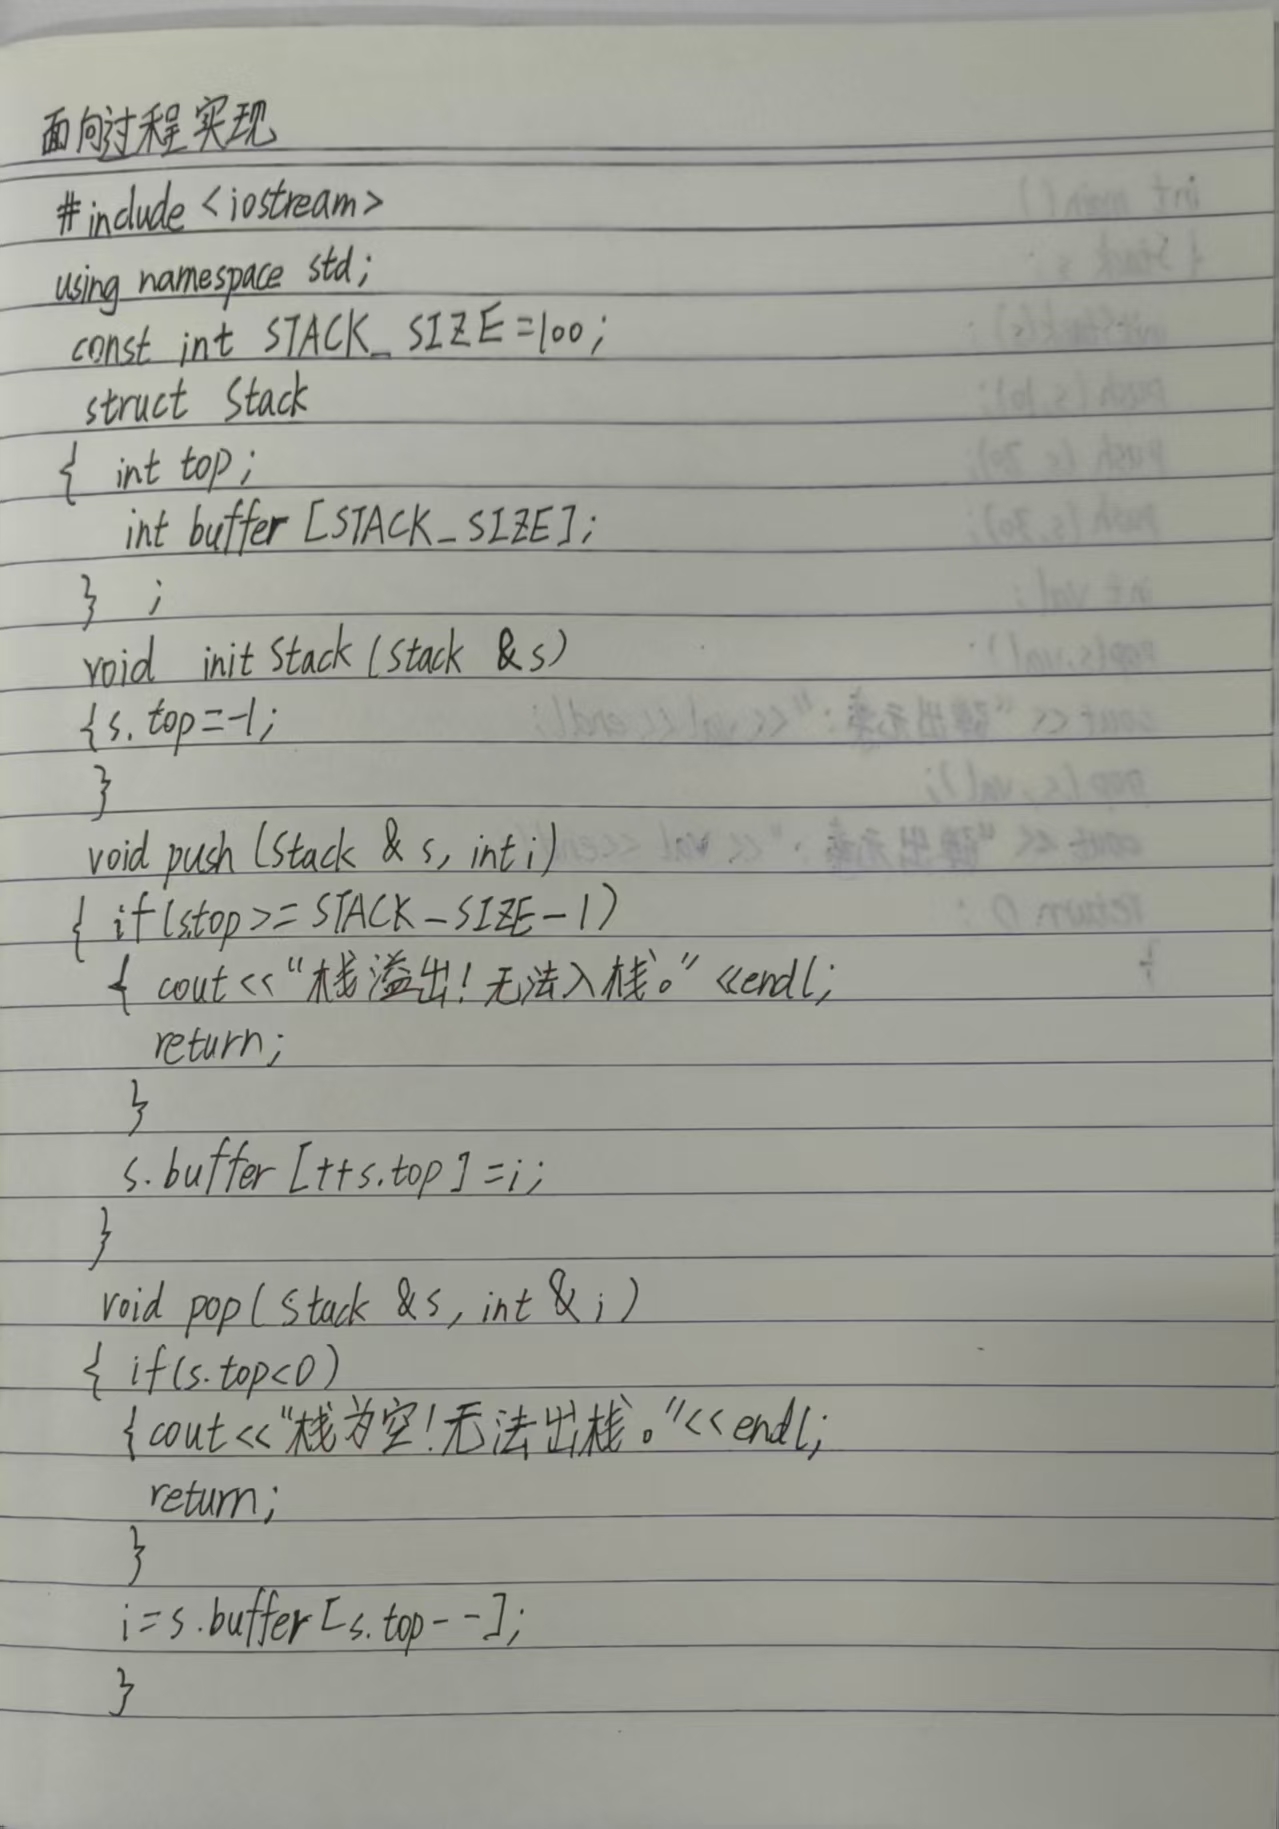 面向过程实现
#include <iostream>
using namespace std;
const int STACK_SIZE=100;
struct Stack
{ int top;
int buffer [STACK_SIZE];
} ;
void init Stack (Stack &s)
{s.top=-1;
}
void push (Stack & s, int i)
{ if(s.top>=STACK_SIZE-1)
{ cout<<"栈溢出!无法入栈。"<<endl;
return;
}
s.buffer [++s.top]=i;
}
void pop (Stack &s, int & i)
{ if(s.top<0)
{cout<<"栈为空!无法出栈。"<<endl;
return;
}
i=s.buffer[s.top--];
}